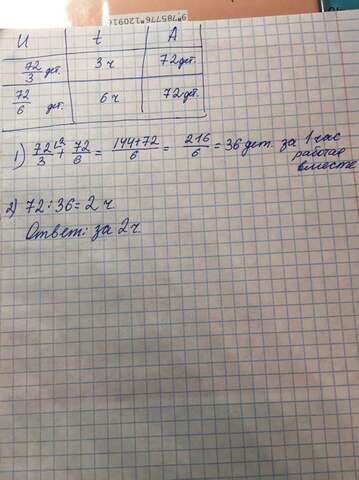 9"785776"12091
И t А
72/3 дет. 3 ч 72 дет.
72/6 дет. 6 ч 72 дет.
1) 72/3 + 72/6 = 144+72/6 = 216/6 = 36 дет. за 1 час
работая
вместе
2) 72:36=2 ч
Ответ: за 2 ч.